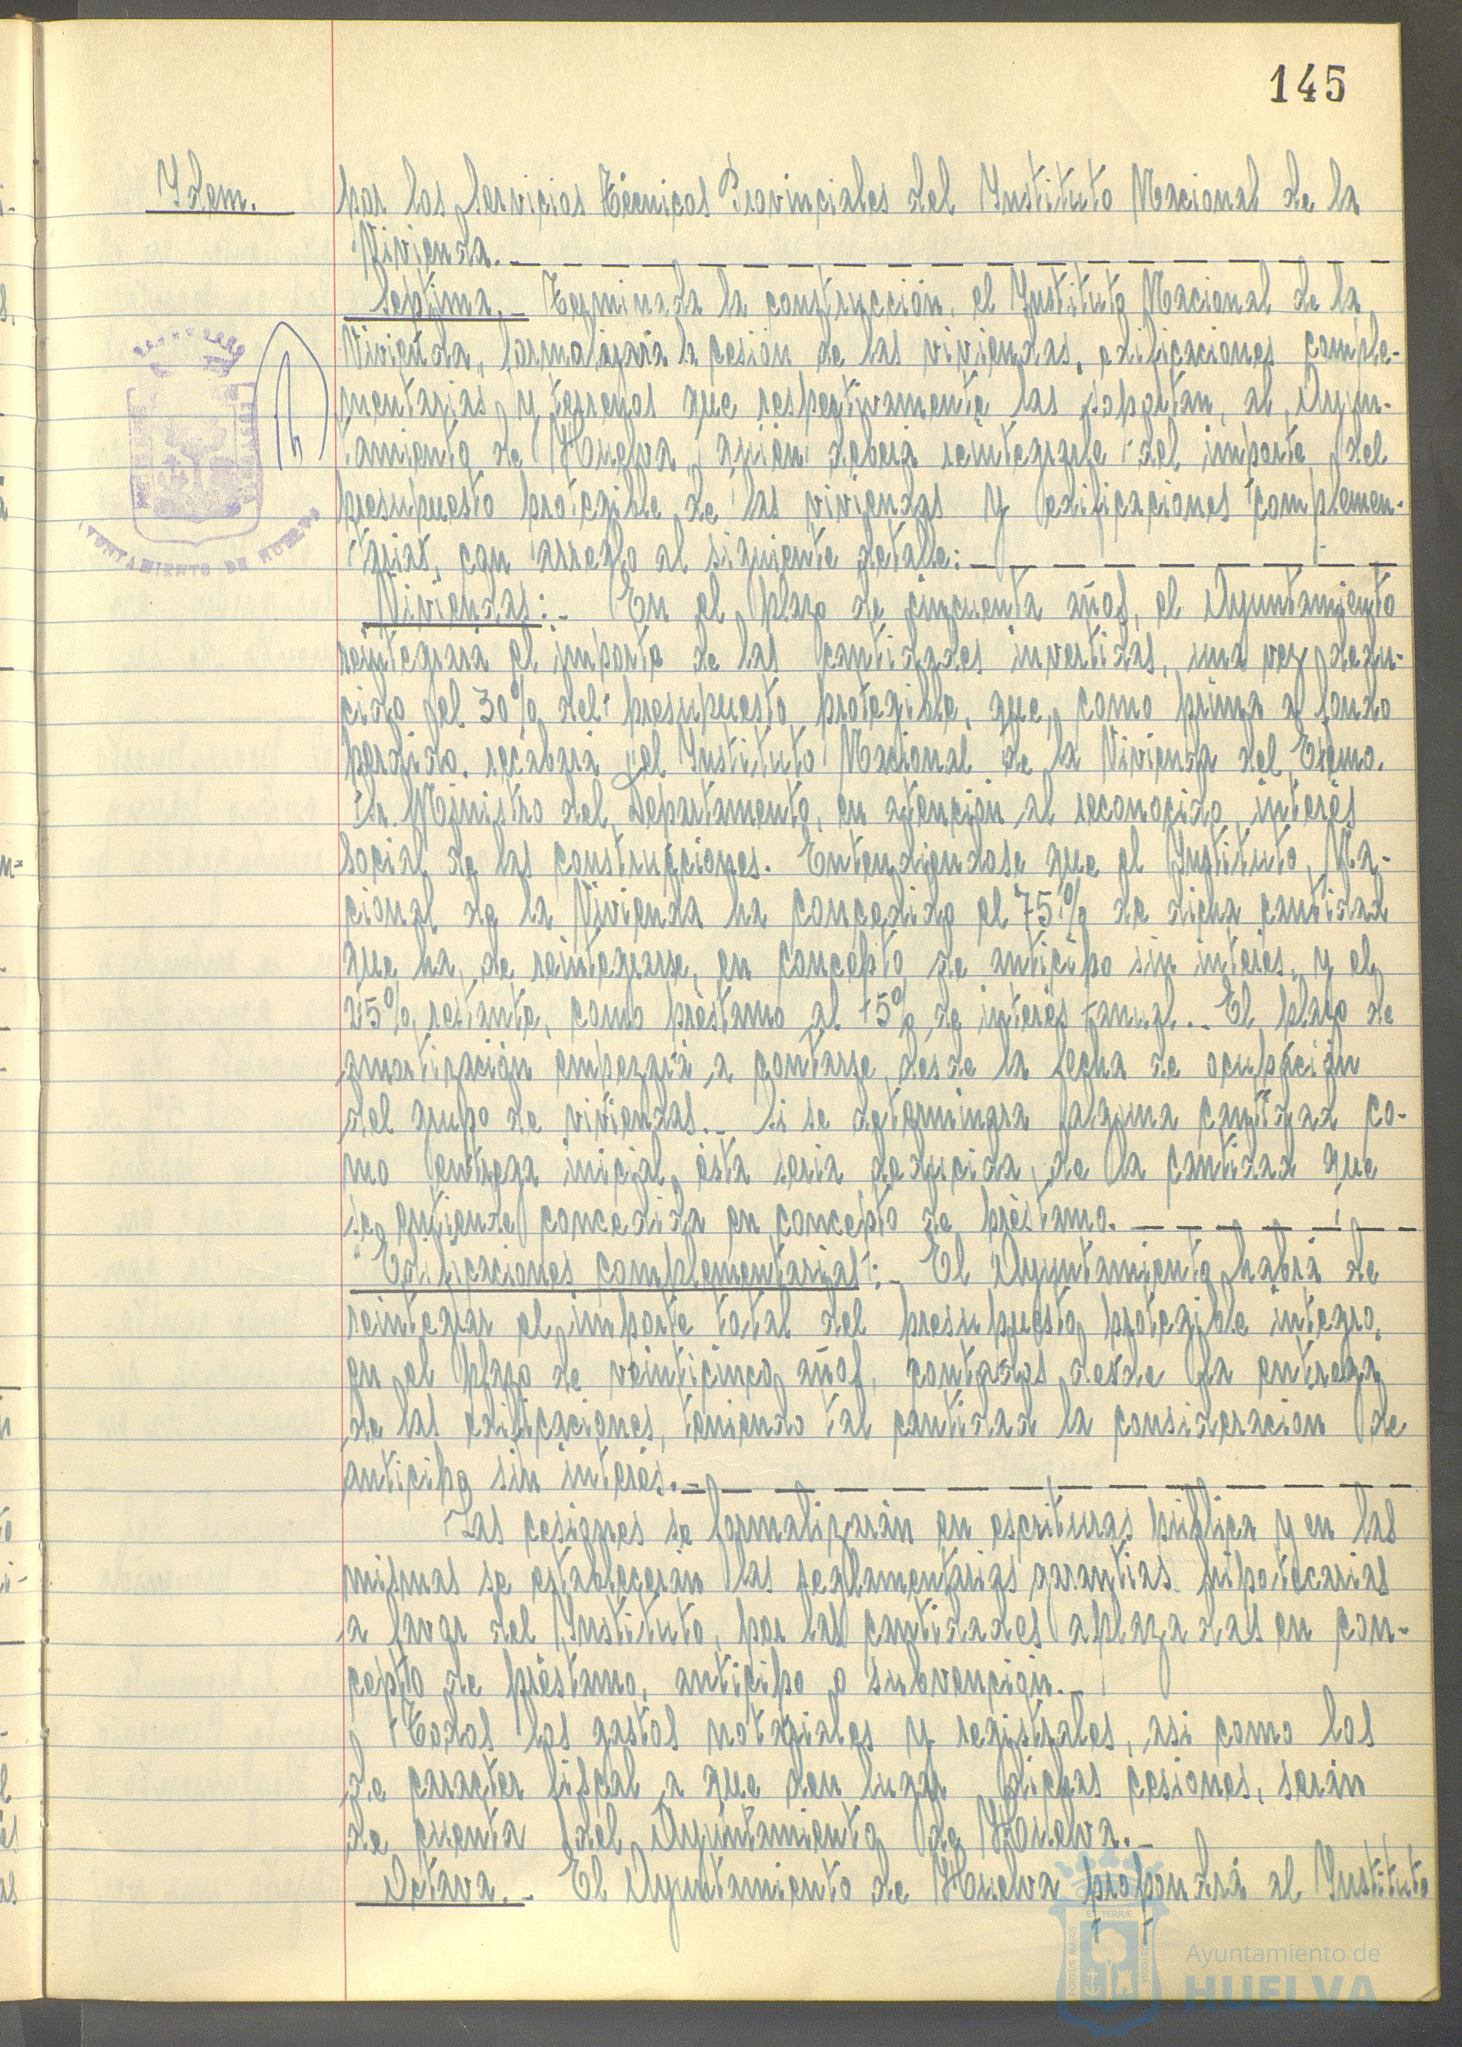 145
Idem.
por los Servicios Técnicos Provinciales del Instituto Nacional de la
Vivienda.-
Septima.- Terminada la construcción, el Instituto Nacional de la
Vivienda, formalizará la cesión de las viviendas, edificaciones comple-
mentarias y terrenos que respectivamente las soportan, al Ayun-
tamiento de Huelva, quién deberá reintegrarle del importe del
presupuesto protegible de las viviendas y edificaciones complemen-
tarias, con arreglo al siguiente detalle:-
Viviendas:- En el plazo de cincuenta años, el Ayuntamiento
reintegrará el importe de las cantidades invertidas, una vez dedu-
cido el 30% del presupuesto protegible, que, como prima a fondo
perdido, recabará el Instituto Nacional de la Vivienda del Excmo.
Sr. Ministro del Departamento, en atención al reconocido interés
social de las construcciones. Entendiendose que el Instituto Na-
cional de la Vivienda ha concedido el 75% de dicha cantidad
que ha de reintegrarse, en concepto de anticipo sin interés, y el
25% restante, como préstamo al 5% de interés anual.- El plazo de
amortización empezará a contarse desde la fecha de ocupación
del grupo de viviendas.- Si se determinara alguna cantidad co-
mo entrega inicial, ésta seria deducida de la cantidad que
se entiende concedida en concepto de préstamo.-
Edificaciones complementarias:- El Ayuntamiento habrá de
reintegrar el importe total del presupuesto protegible integro,
en el plazo de veinticinco años, contados desde la entrega
de las edificaciones, teniendo tal cantidad la consideración de
anticipo sin interés.-
Las cesiones se formalizarán en escrituras pública y en las
mismas se establecerán las reglamentarias garantias hipotecarias
a favor del Instituto, por las cantidades aplazadas en con-
cepto de préstamo, anticipo o subvención.-
Todos los gastos notariales y registrales, asi como los
de caracter fiscal a que den lugar dichas cesiones, serán
de cuenta del Ayuntamiento de Huelva.-
Octava.- El Ayuntamiento de Huelva propondrá al Instituto
AYUNTAMIENTO DE HUELVA
PORTUS MARIS
ET TERRAE
CUSTODIA
Ayuntamiento de
HUELVA